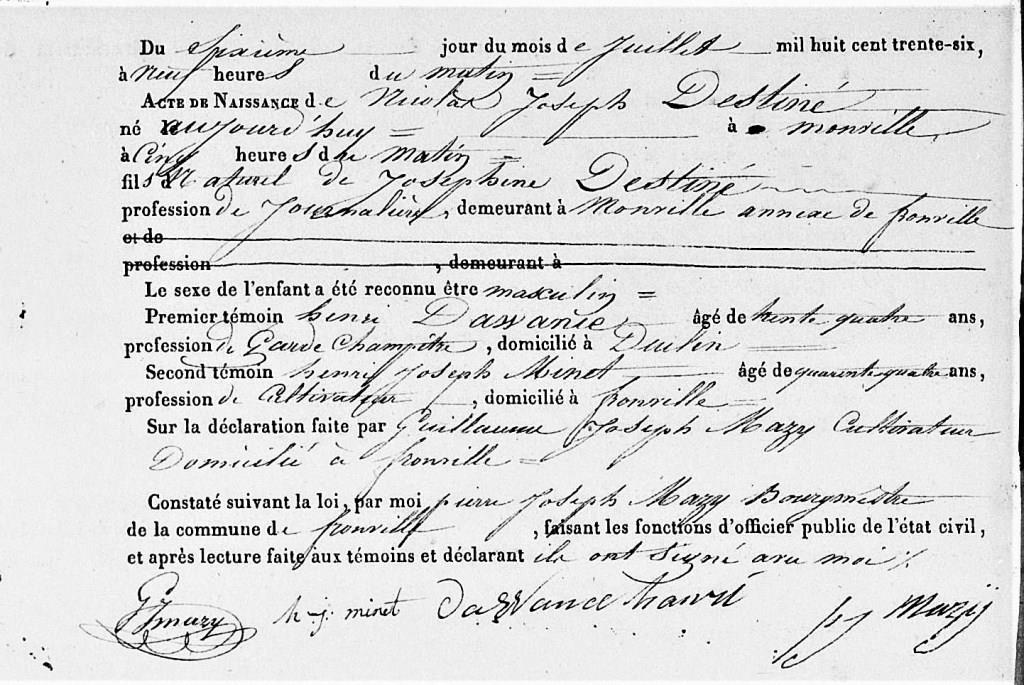 Du Sixième jour du mois de Juillet mil huit cent trente-six,
à neuf heures du matin =
ACTE DE NAISSANCE de Nicolas Joseph Destiné
né aujourd'huy = à monville
à Cinq heures du matin =
fils Naturel de Josephine Destiné
profession de Journalière, demeurant à Monville annexe de fronville
et de
profession , demeurant à
Le sexe de l'enfant a été reconnu être masculin =
Premier témoin henri Davvance âgé de trente quatre ans,
profession de Garde Champêtre, domicilié à Deulin
Second témoin henri Joseph Minet âgé de quarente quatre ans,
profession de Cultivateur, domicilié à fronville
Sur la déclaration faite par Guillaume Joseph Mazy Cultivateur
Domicilié à fronville =
Constaté suivant la loi, par moi pierre Joseph Mazy Bourgmestre
de la commune de fronville, faisant les fonctions d'officier public de l'état civil,
et après lecture faite aux témoins et déclarant ils ont signé avec moi
h-j. minet pj Mazy